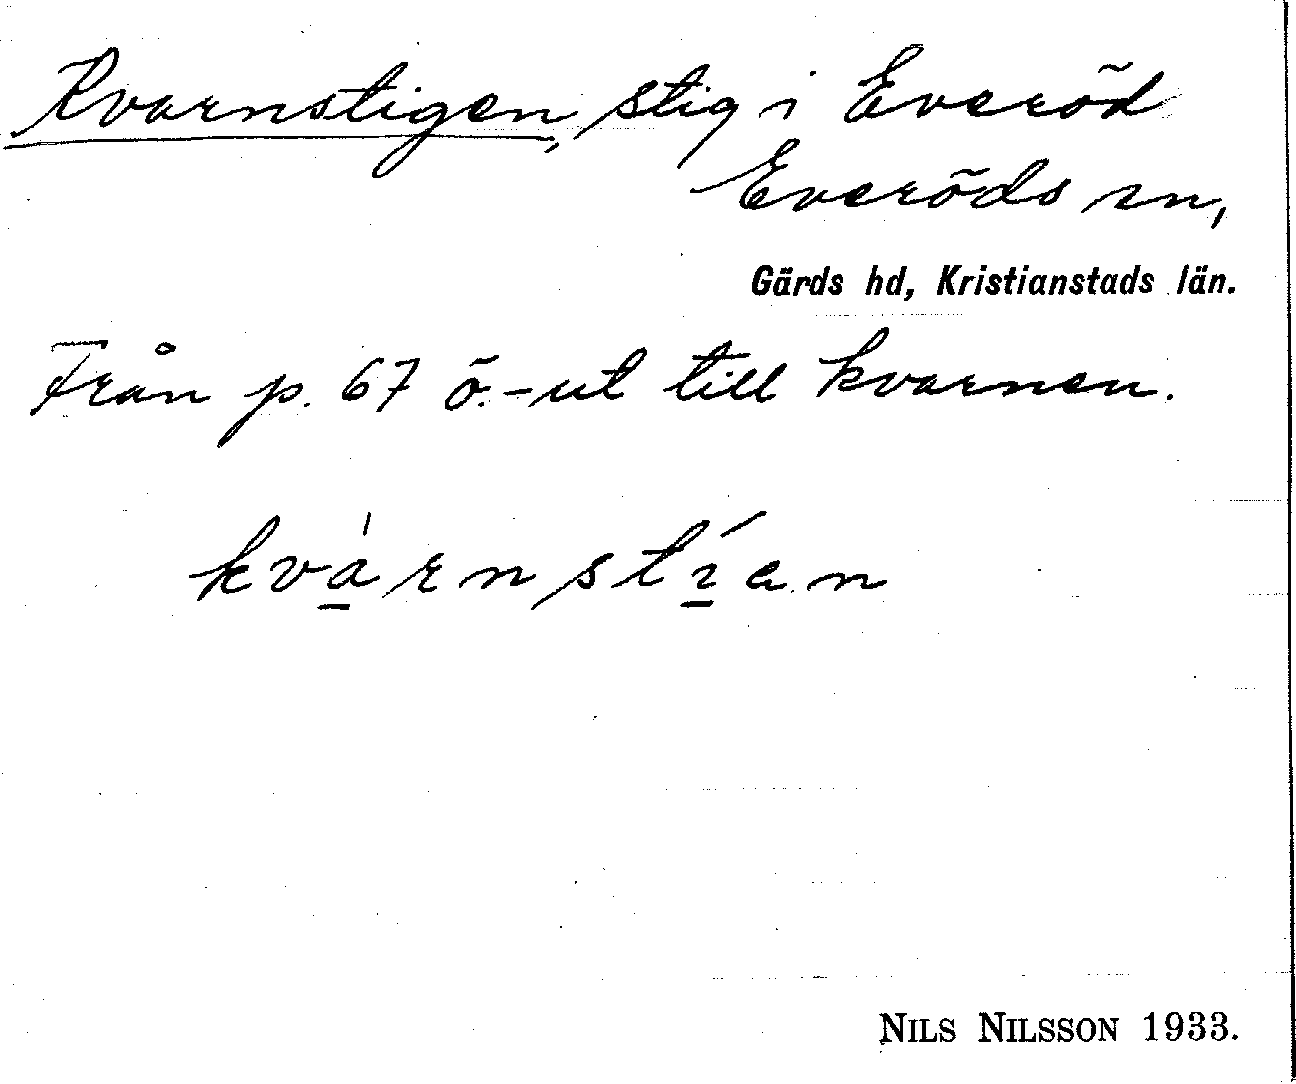 Kvarnstigen, stig i Everöd
Everöds sn,
Gärds hd, Kristianstads län.
Från p. 67 ö.-ut till kvarnen.
kva̱̍rnstí̱an
NILS NILSSON 1933.